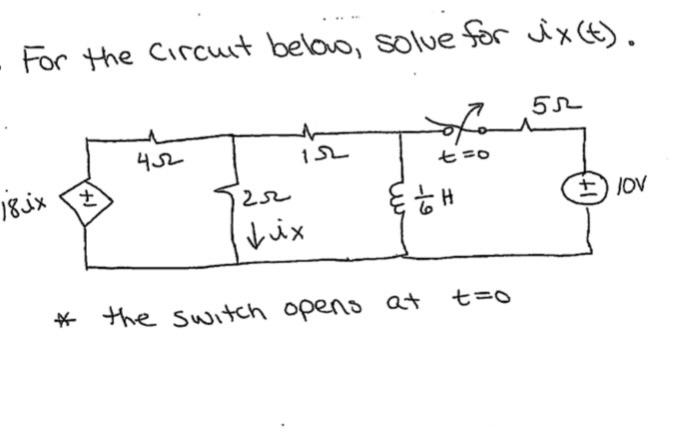 For the circuit below, solve for ix(t).
5Ω
4Ω
1Ω
t=0
18ix
±
2Ω
1/6 H
±
10V
↓ix
* the switch opens at t=0